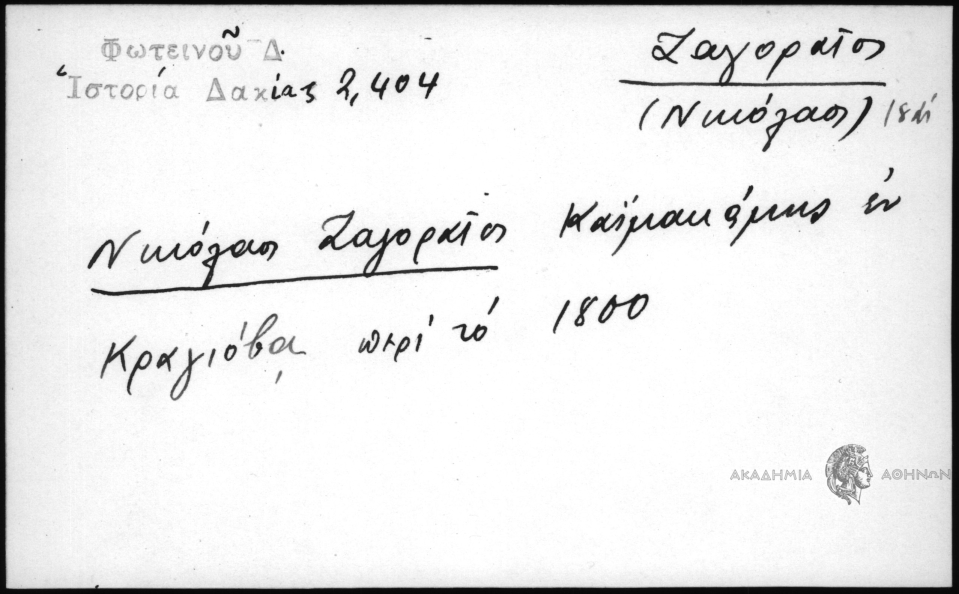 Φωτεινοῦ Δ.
Ἱστορία Δακίας 2,404
Ζαγοραῖος
(Νικόλαος)
Νικόλαος Ζαγοραῖος Καϊμακάμης ἐν
Κραγιόβᾳ περί τό 1800
ΑΚΑΔΗΜΙΑ ΑΘΗΝΩΝ